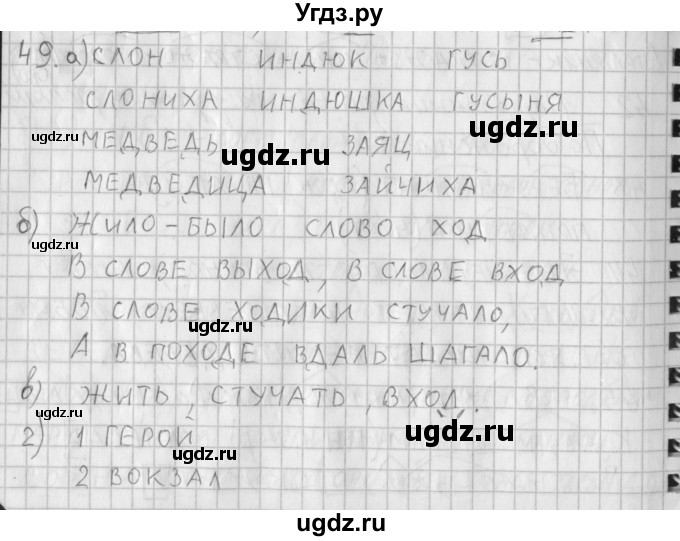 Угдз.ру
49. а) СЛОН ИНДЮК ГУСЬ
СЛОНИХА ИНДЮШКА ГУСЫНЯ
ugdz.ru
МЕДВЕДЬ ugdz.ru ЗАЯЦ ugdz.ru
МЕДВЕДИЦА ЗАЙЧИХА
б) ЖИЛО-БЫЛО СЛОВО ХОД
ugdz.ru
В СЛОВЕ ВЫХОД, В СЛОВЕ ВХОД
В СЛОВЕ ХОДИКИ СТУЧАЛО,
ugdz.ru
А В ПОХОДЕ ВДАЛЬ ШАГАЛО.
в) ЖИТЬ, СТУЧАТЬ, ВХОД.
ugdz.ru
г) 1 ГЕРОЙ ugdz.ru ugdz.ru
2 ВОКЗАЛ
ugdz.ru